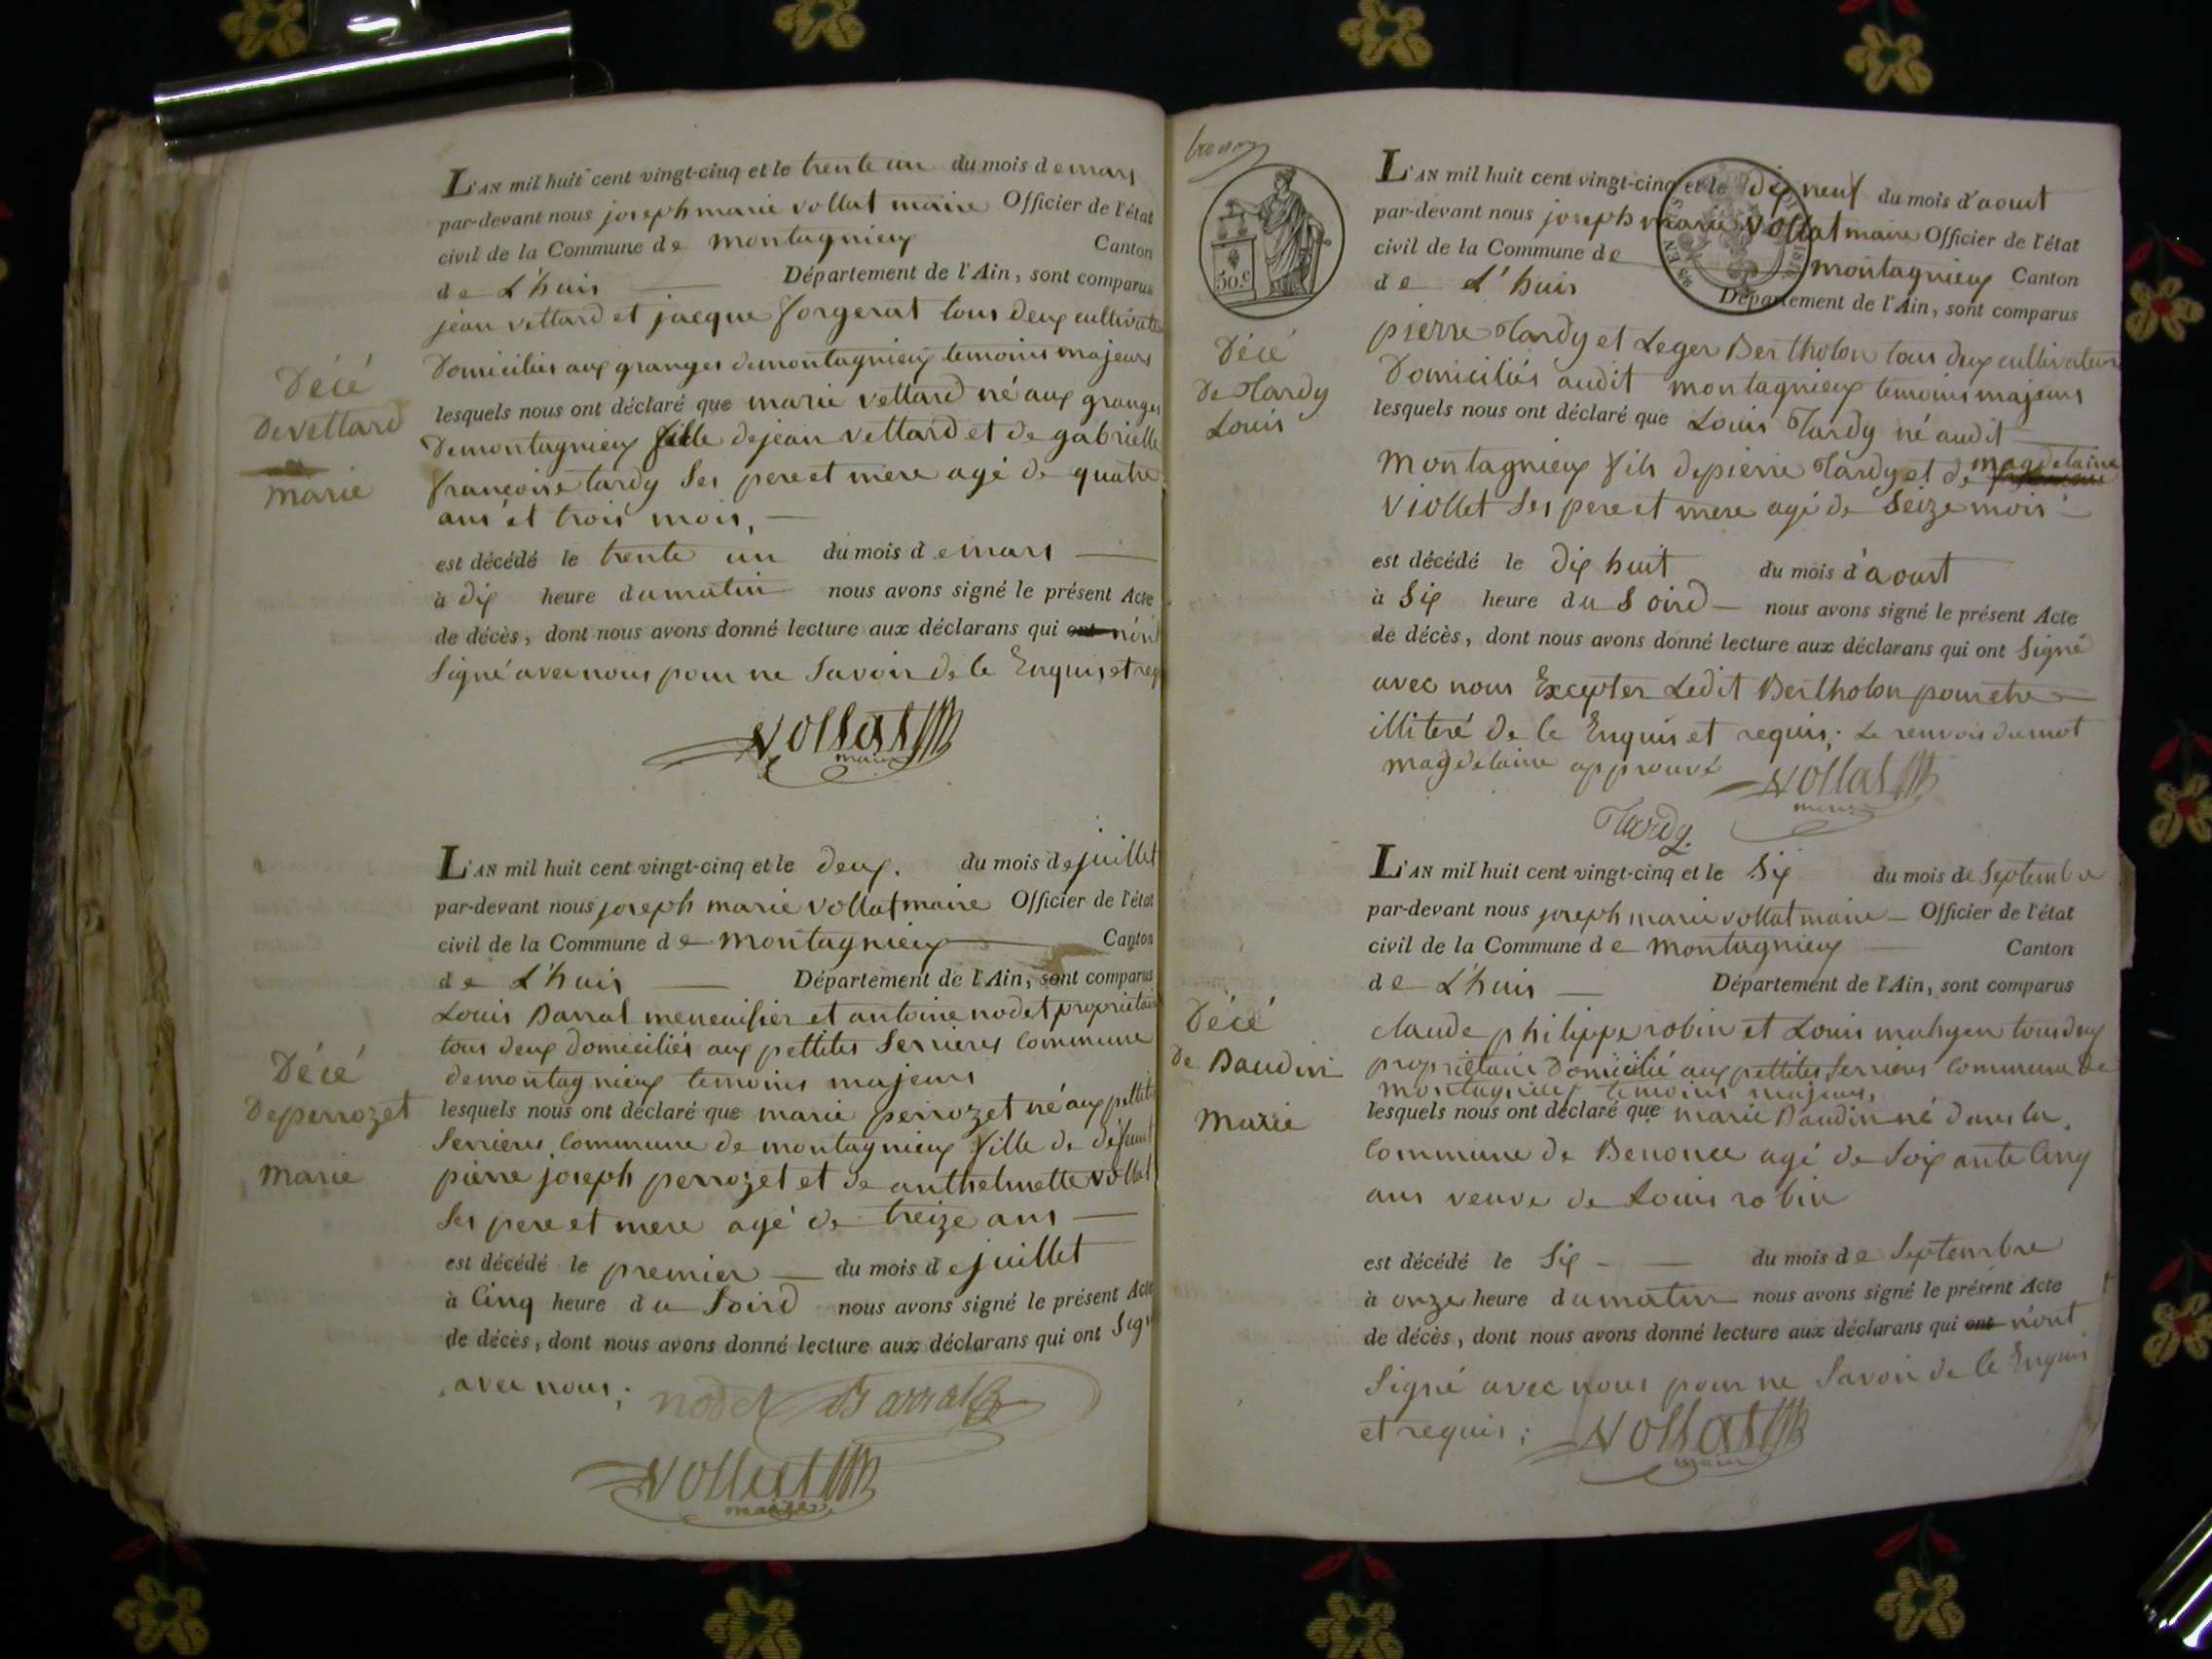 L'AN mil huit cent vingt-cinq et le trente un du mois de mars
par-devant nous joseph marie vollat maire Officier de l'état
civil de la Commune de montagnieux Canton
de L'huis Département de l'Ain, sont comparus
jean vettard et jacque forgerat tous deux cultivate
Domiciliés aux granges demontagnieux temoins majeurs
Décé
Devettard
marie
lesquels nous ont déclaré que marie vettard né aux granges
Demontagnieux fille dejean vettard et de gabrielle
francoise tardy Ses pere et mere agé de quatre
ans et trois mois,
est décédé le trente un du mois de mars
à dix heure du matin nous avons signé le présent Acte
de décès, dont nous avons donné lecture aux déclarans qui ont n'ont
Signé avec nous pour ne Savoir de ce Enquis et req
vollat
maire
L'AN mil huit cent vingt-cinq et le deux. du mois de juillet
par-devant nous joseph marie vollat maire Officier de l'état
civil de la Commune de montagnieux Canton
de L'huis Département de l'Ain, sont comparus
Louis Barral meneuisier et antoine nodet proprietair
tous deux domiciliés aux pettites Serrieres Commune
demontagnieux temoins majeurs
Décé
Deperrozet
marie
lesquels nous ont déclaré que marie perrozet né aux pettite
Serrieres Commune de montagnieux fille de défunt
pierre joseph perrozet et de anthelmette vollat
Ses pere et mere agé de treize ans
est décédé le premier du mois de juillet
à Cinq heure du Soird nous avons signé le présent Acte
de décès, dont nous avons donné lecture aux déclarans qui ont Signé
avec nous;
nodet Barral
vollat
maire
50.c
L'AN mil huit cent vingt-cinq et le dix neuf du mois d'aoust
par-devant nous joseph marie vollat maire Officier de l'état
civil de la Commune de montagnieux Canton
de L'huis Département de l'Ain, sont comparus
pierre Tardy et Leger Bertholon tous deux cultivateurs
Domiciliés audit montagnieux temoins majeurs
Décé
De Tardy
Louis
lesquels nous ont déclaré que Louis Tardy né audit
Montagnieux fils depierre Tardy et de magdelaine
Viollet Ses pere et mere agé de Seize mois
est décédé le dix huit du mois d'aoust
à Six heure du Soird nous avons signé le présent Acte
de décès, dont nous avons donné lecture aux déclarans qui ont Signé
avec nous Excepter Ledit Bertholon pour etre
illiteré de ce Enquis et requis; Le renvois dumot
magdelaine approuvé
vollat
maire
Tardy
L'AN mil huit cent vingt-cinq et le Six du mois de Septembre
par-devant nous joseph marie vollat maire Officier de l'état
civil de la Commune de montagnieux Canton
de L'huis Département de l'Ain, sont comparus
claude philippe robin et Louis tous deux
proprietaire Domicilié aux pettites Serrieres Commune De
montagnieux temoins majeurs,
Décé
De Baudin
Marie
lesquels nous ont déclaré que marie Baudin né dans la
Commune de Benonce agé de Soixante Cinq
ans veuve de Louis robin
est décédé le Six du mois de Septembre
à onze heure du matin nous avons signé le présent Acte
de décès, dont nous avons donné lecture aux déclarans qui ont n'ont
Signé avec nous pour ne Savoir de ce Enquis
et requis;
vollat
maire